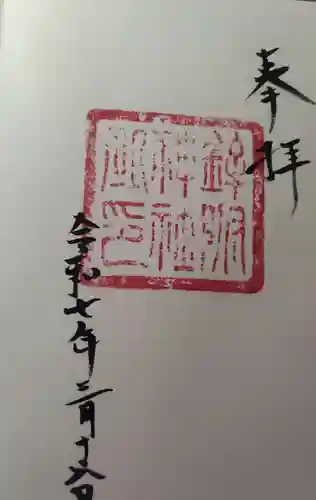 奉拝
神社
之印
令和七年二月十八日